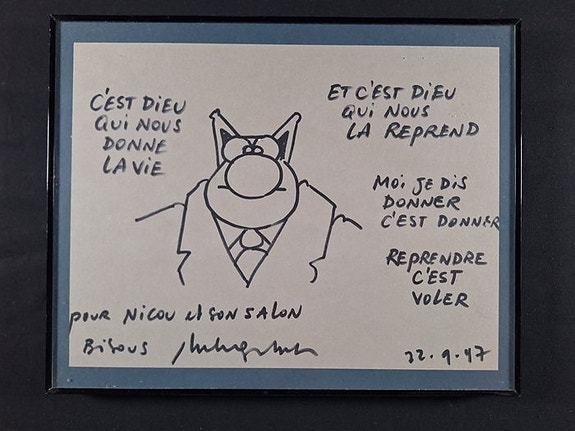 C'EST DIEU
QUI NOUS
DONNE
LA VIE
ET C'EST DIEU
QUI NOUS
LA REPREND
MOI JE DIS
DONNER
C'EST DONNER
REPRENDRE
C'EST
VOLER
POUR NICOU et SON SALON
BISOUS
22.9.97